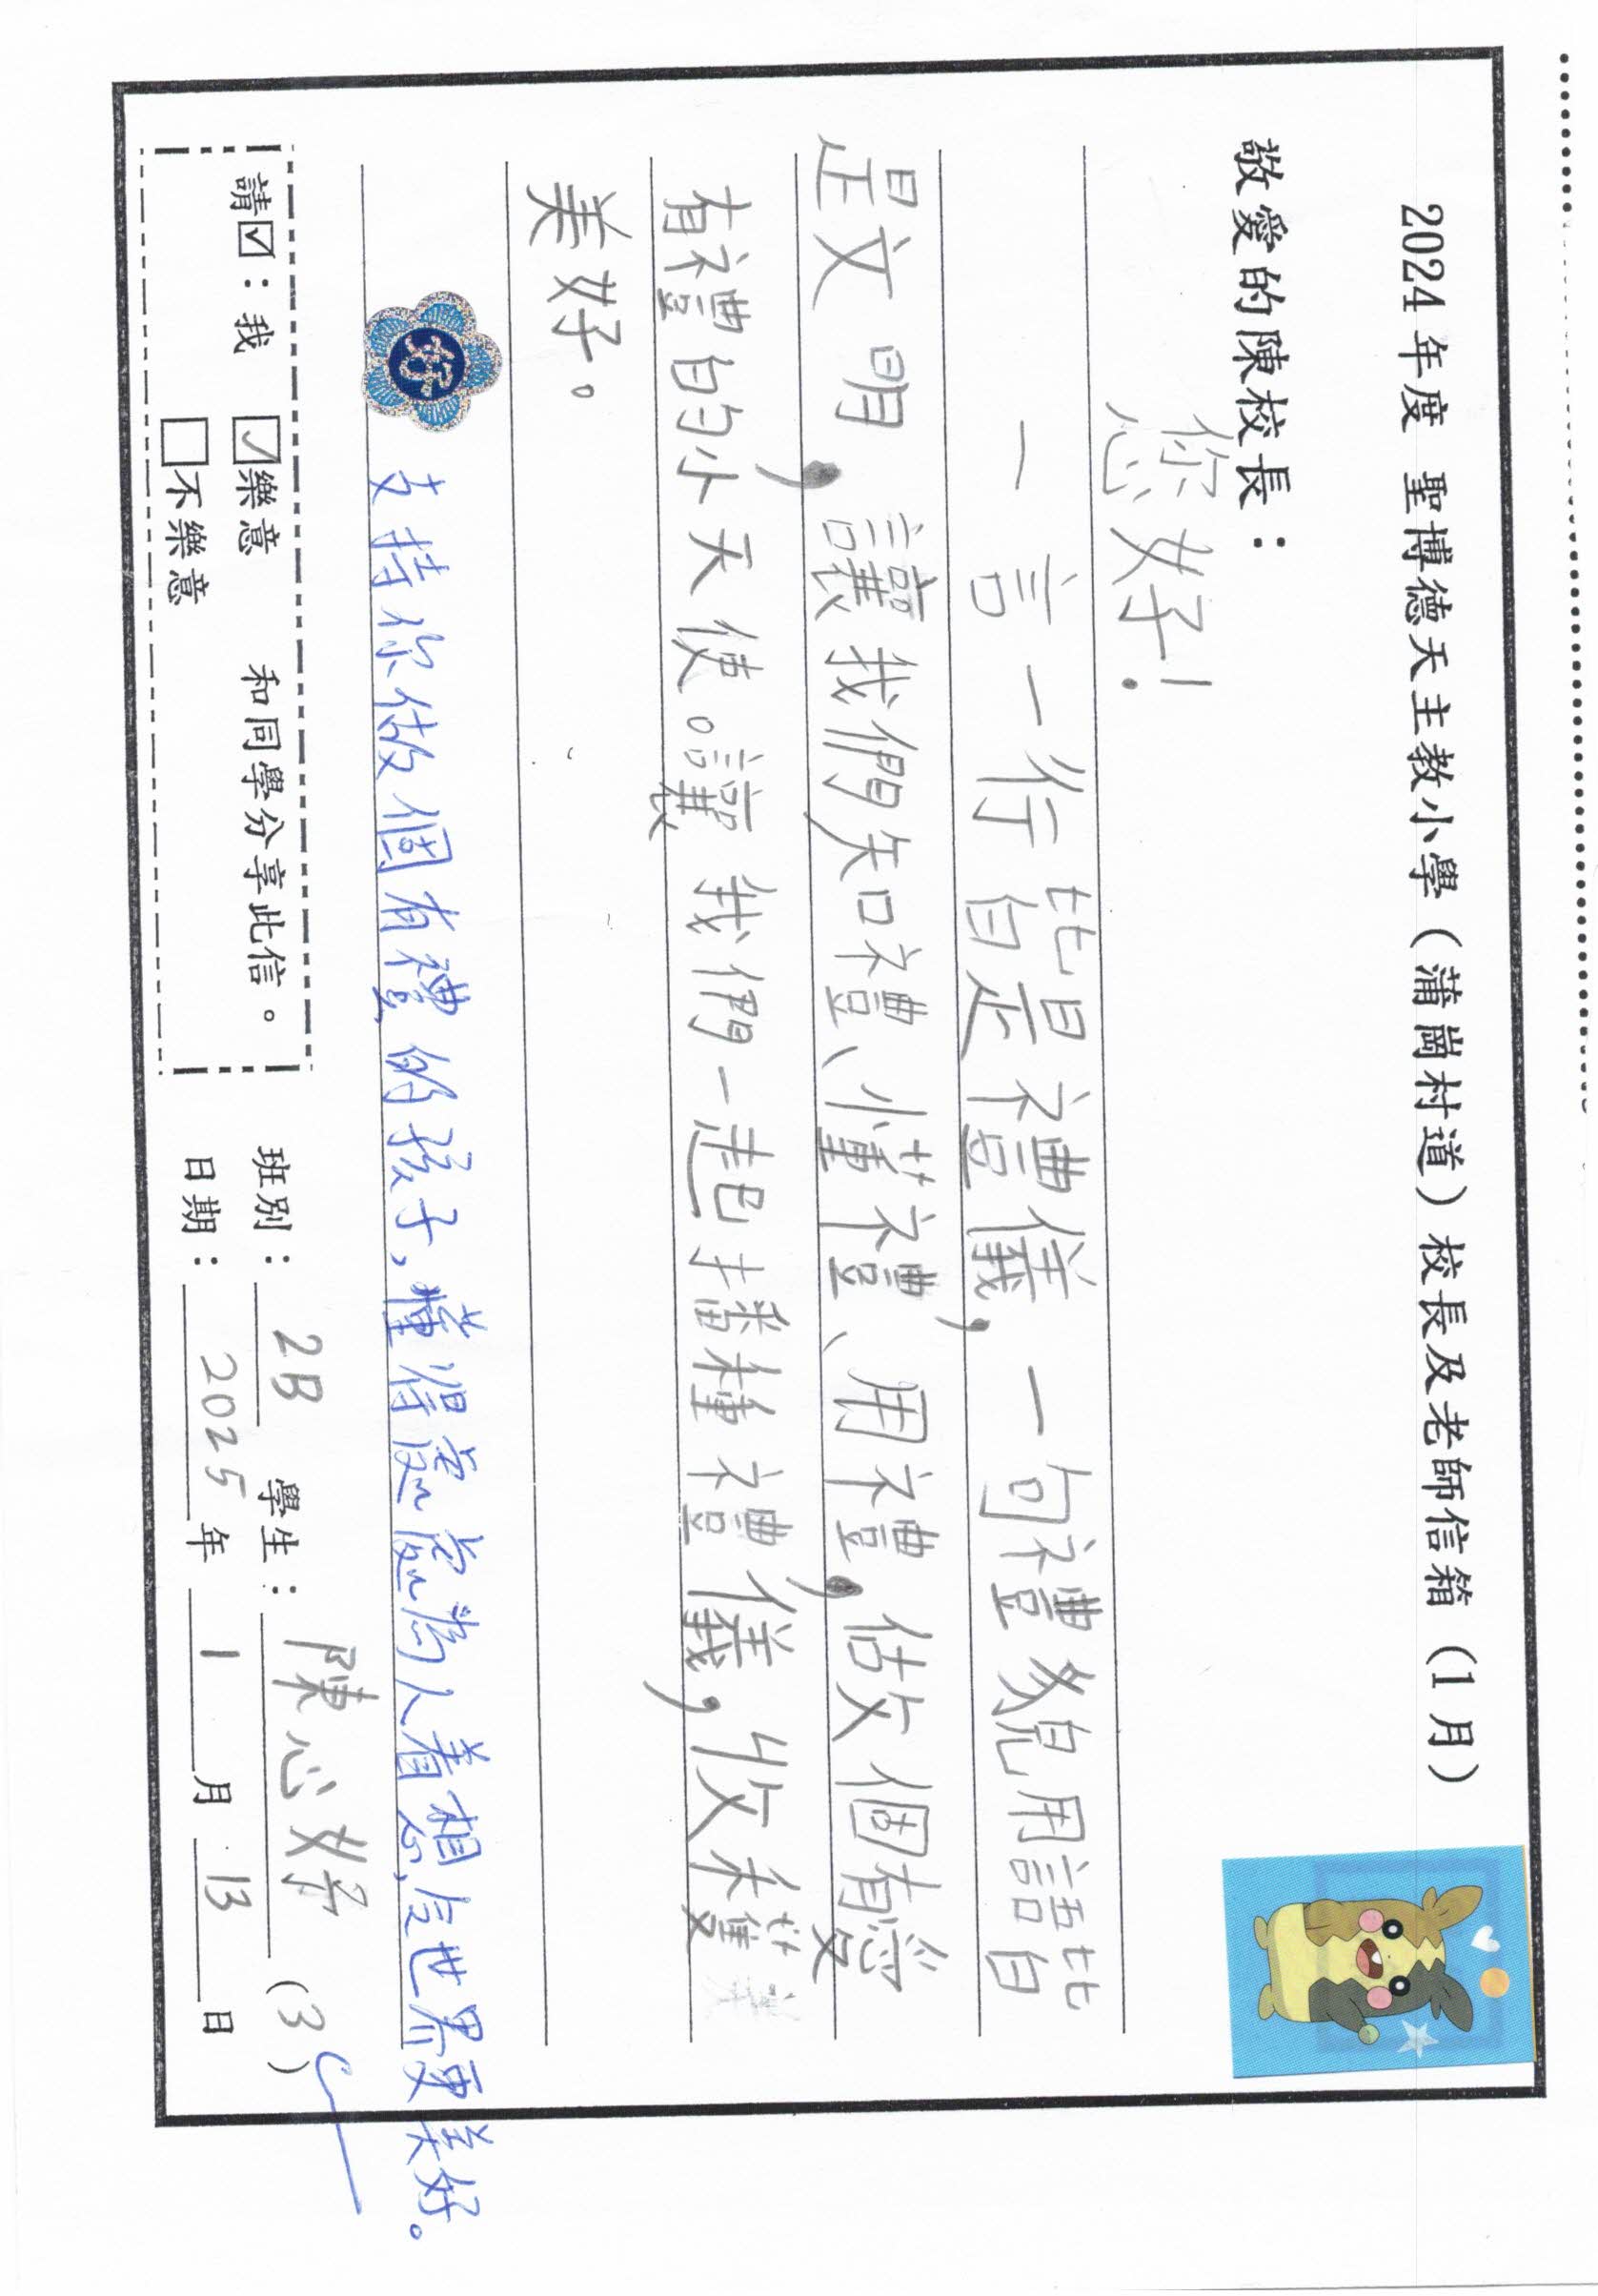 2024 年度 聖博德天主教小學（蒲崗村道）校長及老師信箱（1 月）
敬愛的陳校長：
您好！
一言一行皆是禮儀，一句禮貌用語皆
是文明，讓我們知禮、懂禮、用禮，做個有愛
有禮的小天使。讓我們一起播種禮儀，收獲
美好。
支持你做個有禮的孩子，懂得處處為人着想，令世界更美好。
請☑：我 ☑樂意 和同學分享此信。
□不樂意
班別：2B 學生：陳心妤 (3)
日期：2025 年 1 月 13 日